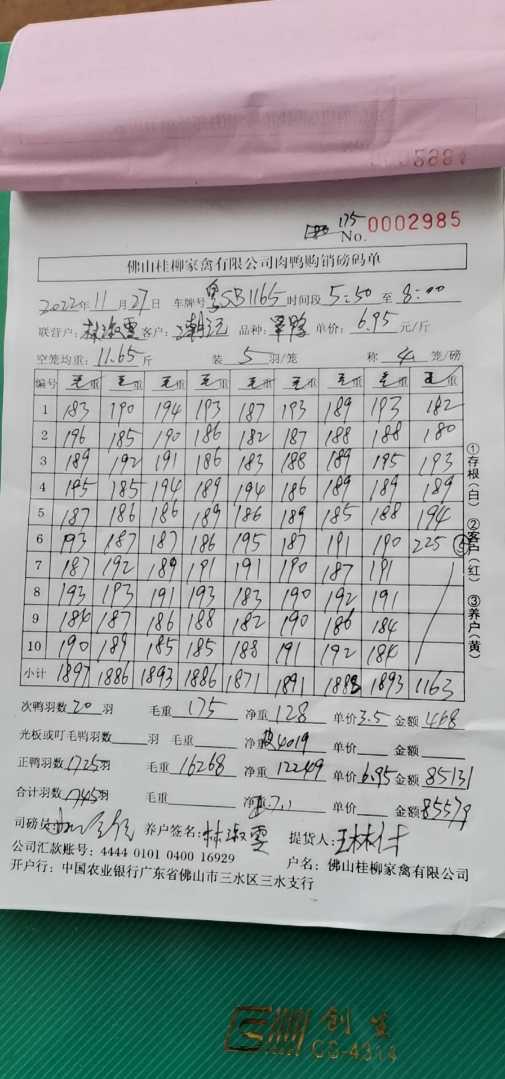 175
No. 0002985
佛山桂柳家禽有限公司肉鸭购销磅码单
2022年11月27日 车牌号粤SB1165时间段5:50至8:00
联营户:林淑雲客户: 品种: 单价:6.95元/斤
空笼均重:11.65斤 装5羽/笼 称4笼/磅
编号 毛重 毛重 毛重 毛重 毛重 毛重 毛重 毛重 毛重
1 183 190 194 193 187 193 189 193 182
2 196 185 190 186 182 187 188 188 180
3 189 192 191 186 183 188 189 195 193
4 195 185 194 189 194 186 189 189 189
5 187 186 186 189 186 189 185 188 194
6 193 187 187 186 195 187 191 190 225 ⑤
7 187 192 189 191 191 190 187 191
8 193 193 191 193 183 190 192 191
9 184 187 186 188 182 190 186 184
10 190 189 185 185 188 191 192 184
小计 1897 1886 1893 1886 1871 1891 1888 1893 1163
①存根(白) ②客户(红) ③养户(黄)
次鸭羽数20羽 毛重175 净重128 单价3.5 金额448
光板或叮毛鸭羽数 羽 毛重 净重 4019 单价 金额
正鸭羽数1725羽 毛重16268 净重12249 单价6.95金额85131
合计羽数1745羽 毛重 净重7.1 单价 金额85579
司磅员: 养户签名:林淑雲 提货人:
公司汇款账号: 4444 0101 0400 16929 户名: 佛山桂柳家禽有限公司
开户行: 中国农业银行广东省佛山市三水区三水支行
创美
CS-4314